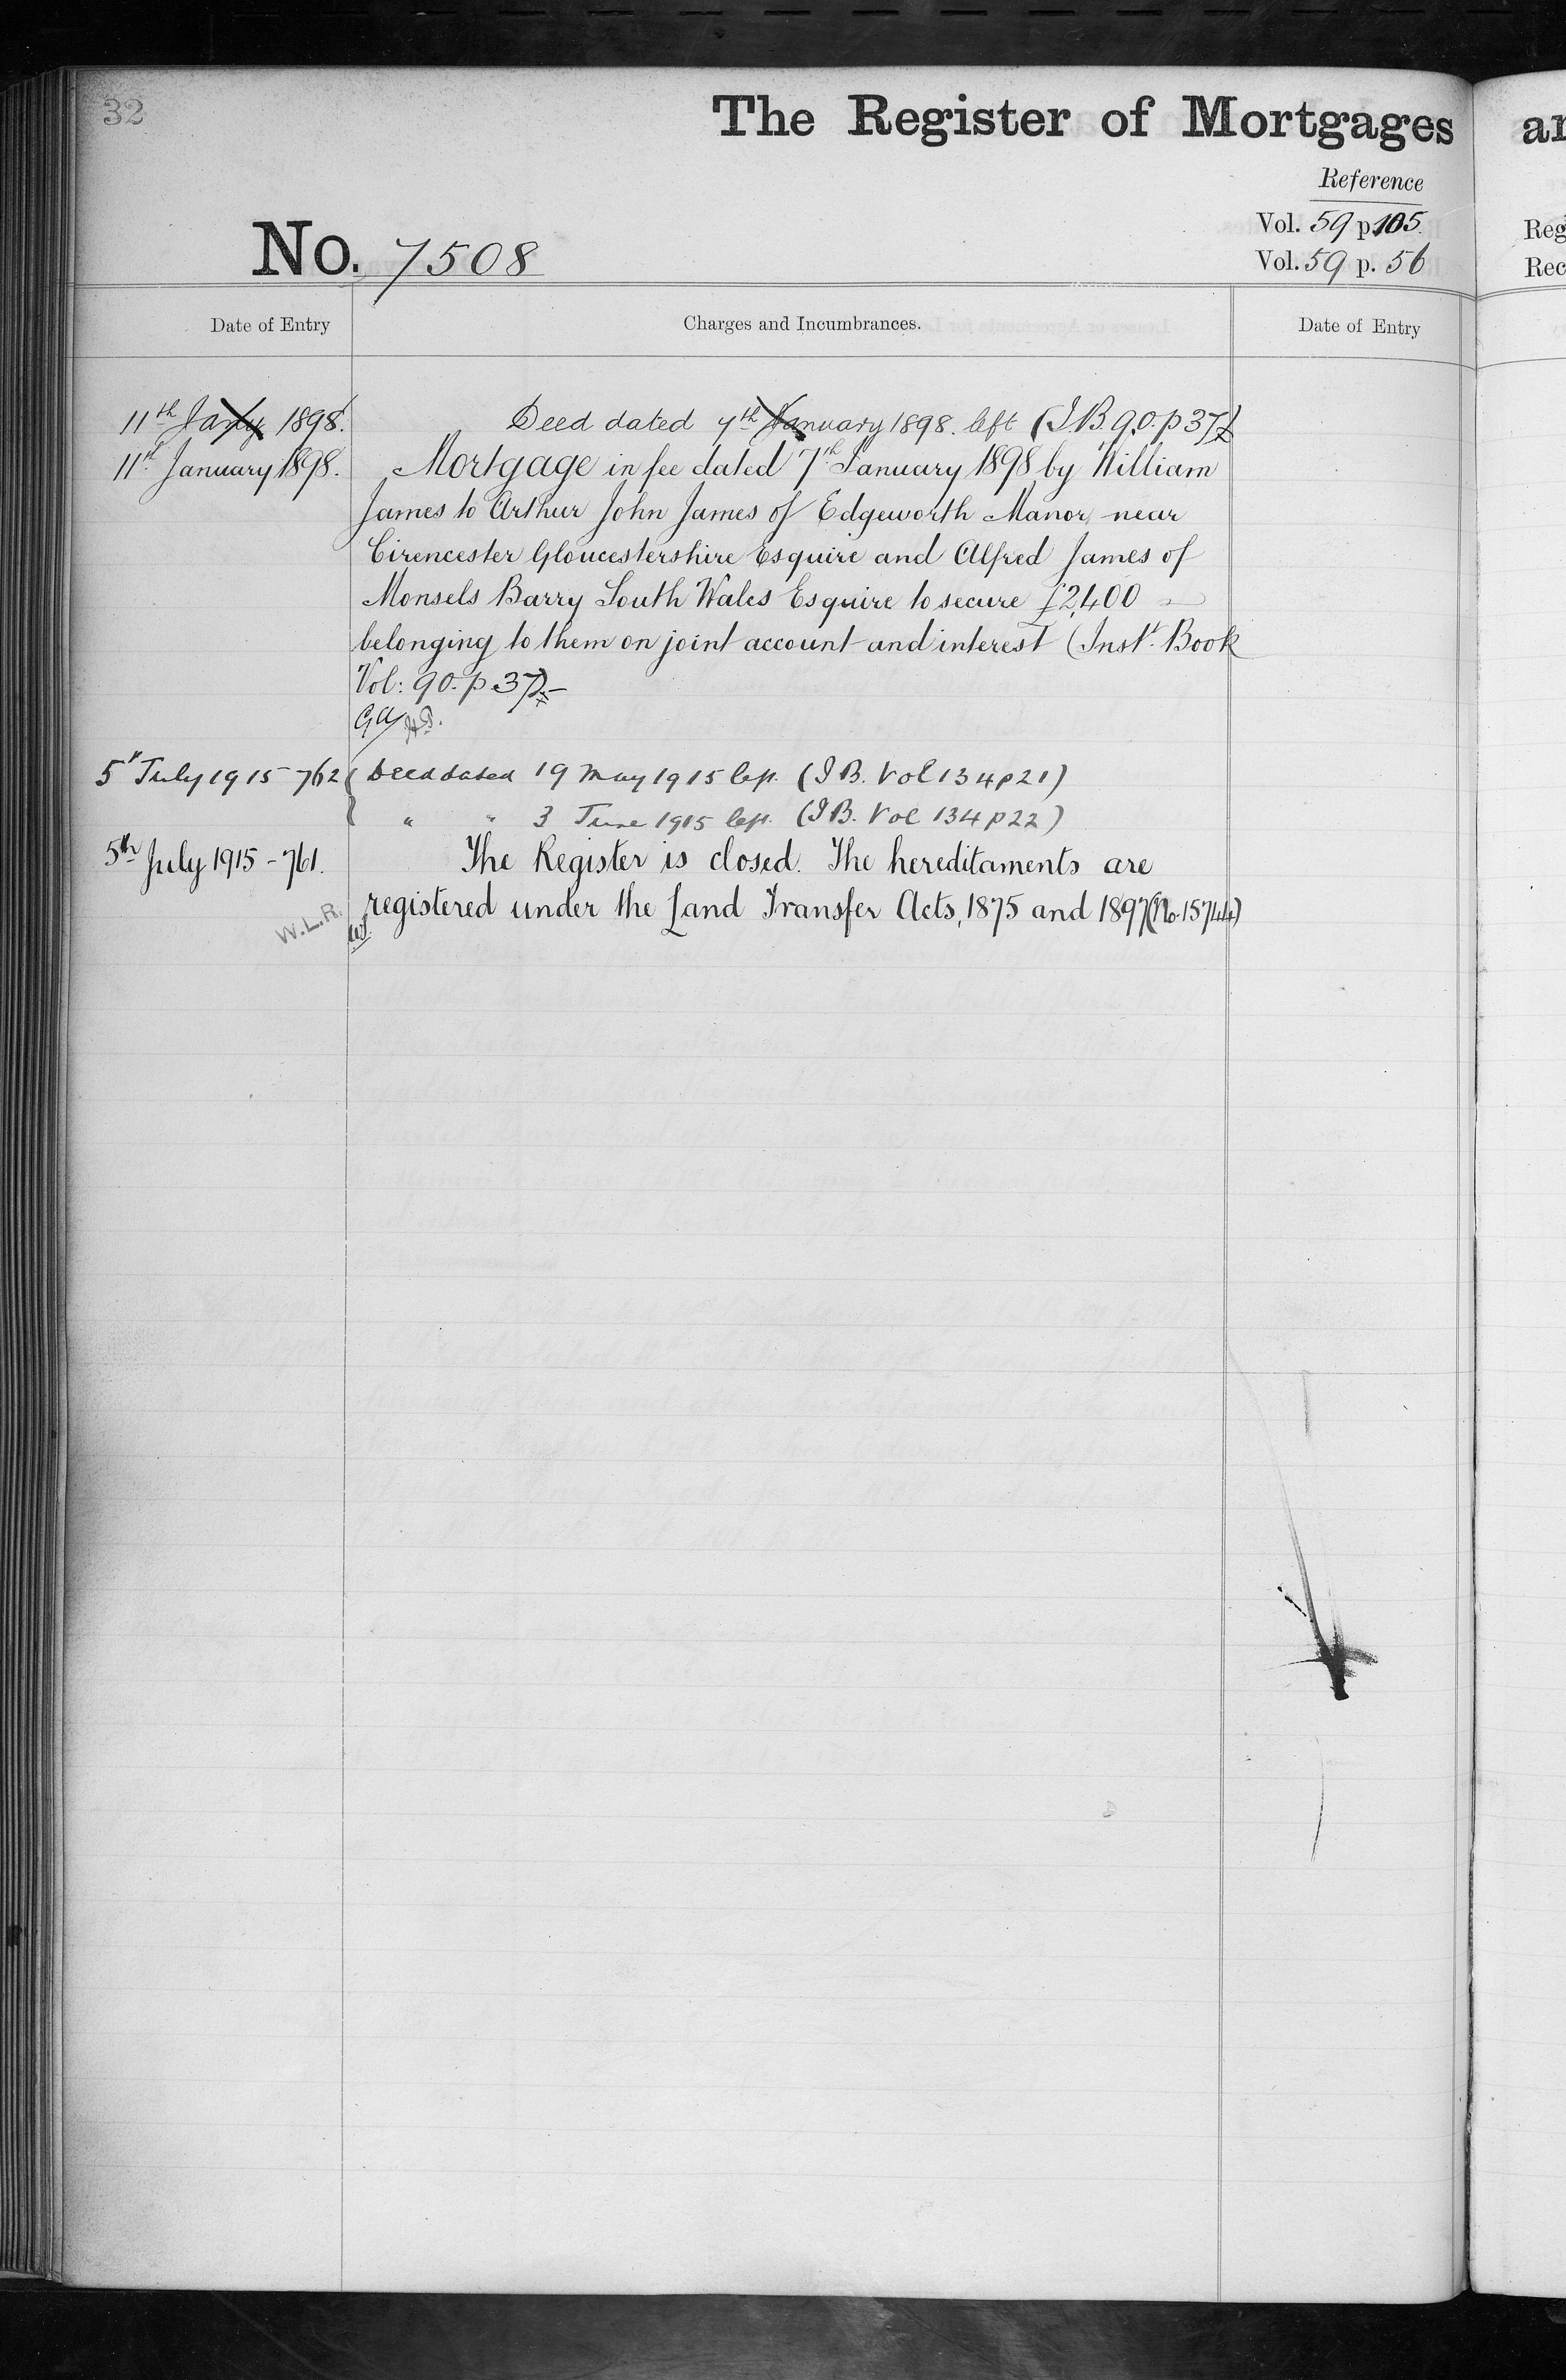 32
The Register of Mortgages
Reference
No. 7508
Vol. 59 p. 105.
Vol. 59 p. 56
Date of Entry
Charges and Incumbrances.
Date of Entry
11th Jany 1898.
Deed dated 7th January 1898. left (I.B. 90. p 37)
11th January 1898.
Mortgage in fee dated 7th January 1898 by William
James to Arthur John James of Edgeworth Manor near
Cirencester Gloucestershire Esquire and Alfred James of
Monsels Barry South Wales Esquire to secure £2,400
belonging to them on joint account and interest (Inst. Book
Vol: 90. p. 37).
5th July 1915 - 762
Deed dated 19 May 1915 left. (I B. Vol 134 p 21)
" " 3 June 1915 left. (I B. Vol 134 p 22)
5th July 1915 - 761.
The Register is closed. The hereditaments are
registered under the Land Transfer Acts, 1875 and 1897 (No. 15744)
W.L.R.
ar
Reg
Rec